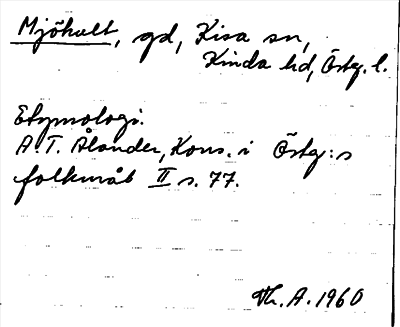 Mjöhult, gd, Kisa sn,
Kinda hd, Östg. l.
Etymologi.
A. T. Ålander, Kons. i Östg:s
folkmål II s. 77.
Th. A. 1960